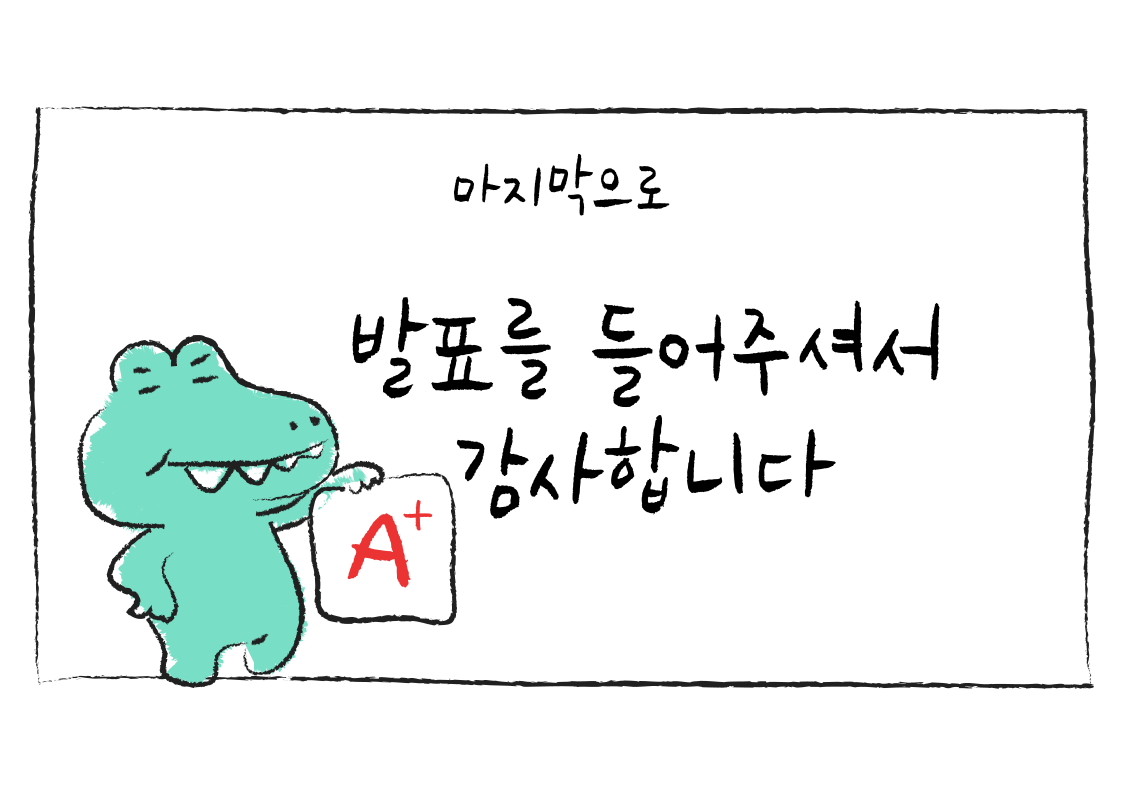 마지막으로
발표를 들어주셔서
감사합니다
A+